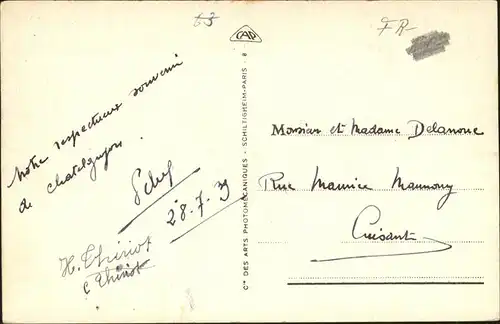 63
CAP
FR-
Notre respectueux souvenir
de Chatelguyon.
28.7.39
H. Thiriot
C Thiriot
Cie DES ARTS PHOTOMÉCANIQUES - SCHILTIGHEIM-PARIS - 8
Monsieur et Madame Delanoue
Rue Maurice Maunoury
Cuisant